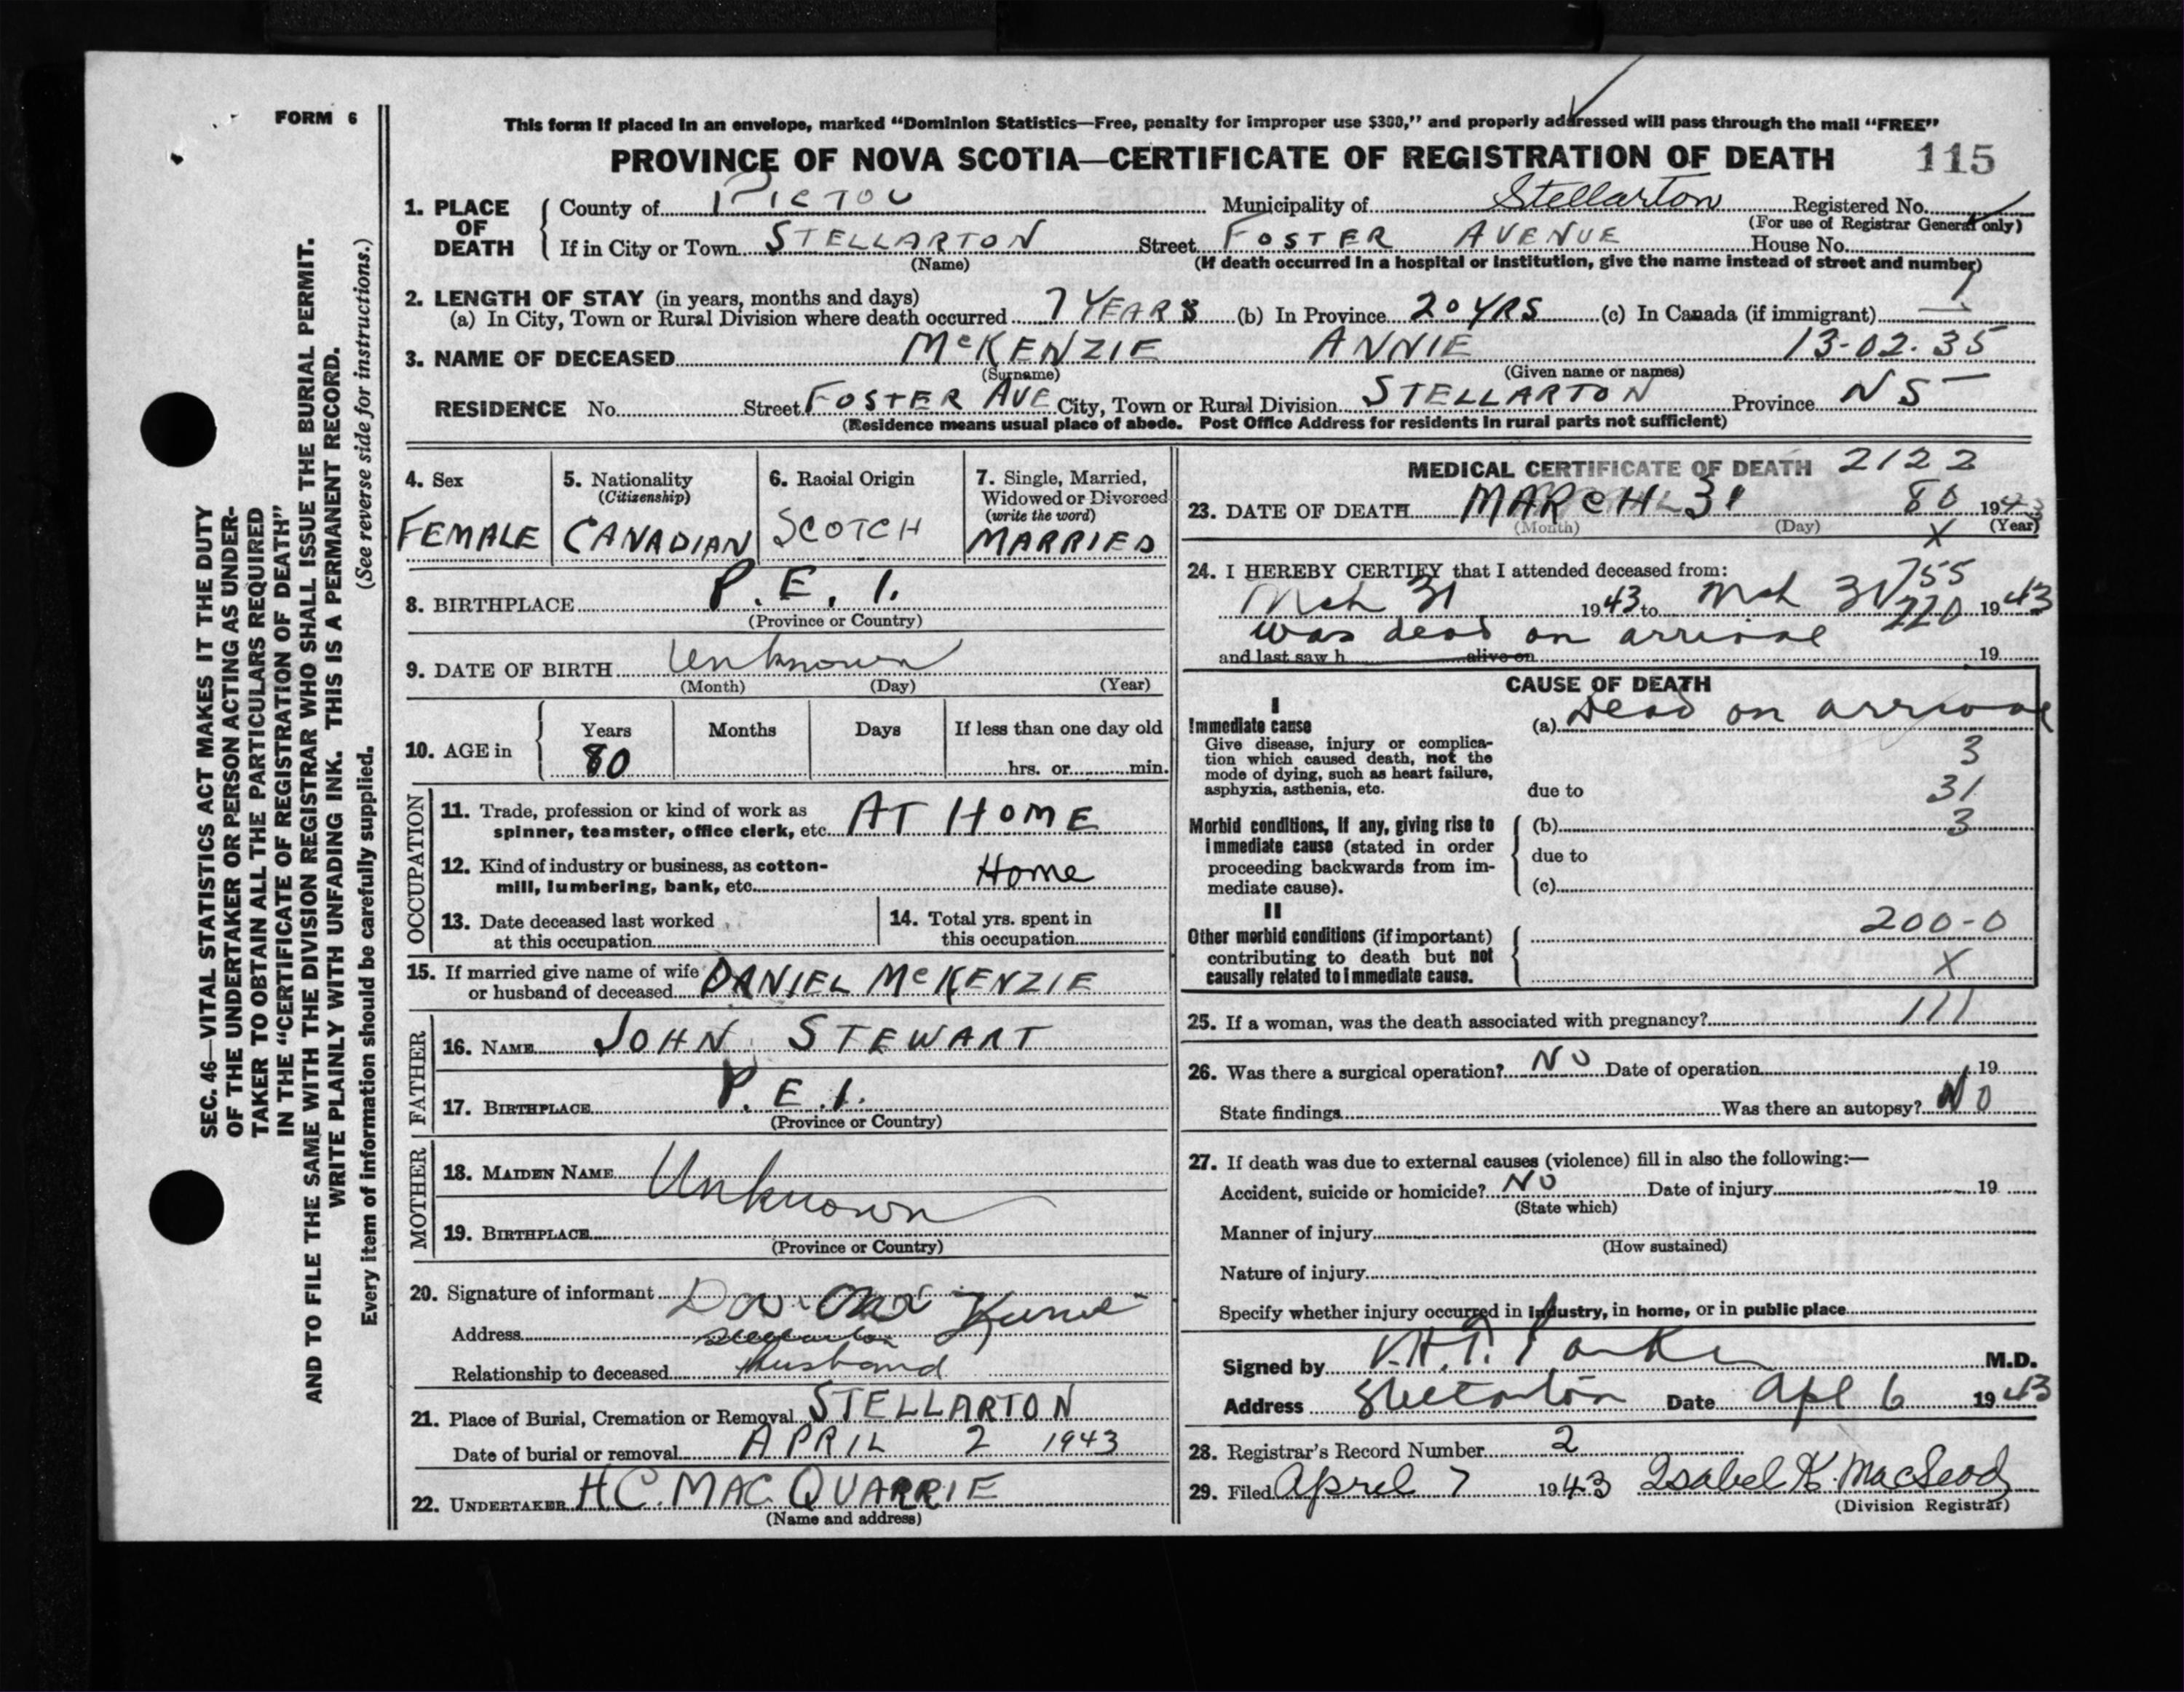 FORM 6
This form if placed in an envelope, marked "Dominion Statistics—Free, penalty for improper use $300," and properly addressed will pass through the mail "FREE"
PROVINCE OF NOVA SCOTIA—CERTIFICATE OF REGISTRATION OF DEATH 115
1. PLACE OF DEATH
County of PICTOU Municipality of Stellarton Registered No.
(For use of Registrar General only)
If in City or Town STELLARTON Street FOSTER AVENUE House No.
(Name) (If death occurred in a hospital or institution, give the name instead of street and number)
2. LENGTH OF STAY (in years, months and days)
(a) In City, Town or Rural Division where death occurred 7 YEARS (b) In Province 20 YRS (c) In Canada (if immigrant) —
3. NAME OF DECEASED McKENZIE ANNIE 13-02-35
(Surname) (Given name or names)
RESIDENCE No. Street FOSTER AVE City, Town or Rural Division STELLARTON Province NS
(Residence means usual place of abode. Post Office Address for residents in rural parts not sufficient)
4. Sex
FEMALE
5. Nationality
(Citizenship)
CANADIAN
6. Racial Origin
SCOTCH
7. Single, Married,
Widowed or Divorced
(write the word)
MARRIED
8. BIRTHPLACE P.E.I.
(Province or Country)
9. DATE OF BIRTH Unknown
(Month) (Day) (Year)
10. AGE in
Years Months Days If less than one day old
80 hrs. or min.
OCCUPATION
11. Trade, profession or kind of work as
spinner, teamster, office clerk, etc. AT HOME
12. Kind of industry or business, as cotton-
mill, lumbering, bank, etc. Home
13. Date deceased last worked
at this occupation
14. Total yrs. spent in
this occupation
15. If married give name of wife
or husband of deceased DANIEL McKENZIE
FATHER
16. NAME JOHN STEWART
17. BIRTHPLACE P.E.I.
(Province or Country)
MOTHER
18. MAIDEN NAME Unknown
19. BIRTHPLACE
(Province or Country)
20. Signature of informant
Address Stellarton
Relationship to deceased Husband
21. Place of Burial, Cremation or Removal STELLARTON
Date of burial or removal APRIL 2 1943
22. UNDERTAKER H C. MAC QUARRIE
(Name and address)
MEDICAL CERTIFICATE OF DEATH 2122
23. DATE OF DEATH MARCH 31 80 1943
(Month) (Day) X (Year)
24. I HEREBY CERTIFY that I attended deceased from: 755
Mch 31 1943 to Mch 31 220 1943
was dead on arrival
and last saw h alive on 19
CAUSE OF DEATH
I
Immediate cause (a) Dead on arrival
Give disease, injury or complica-
tion which caused death, not the
mode of dying, such as heart failure,
asphyxia, asthenia, etc.
3
due to 31
Morbid conditions, if any, giving rise to
immediate cause (stated in order
proceeding backwards from im-
mediate cause).
(b) 3
due to
(c)
II
Other morbid conditions (if important)
contributing to death but not
causally related to immediate cause.
200-0
X
25. If a woman, was the death associated with pregnancy? 111
26. Was there a surgical operation? NO Date of operation 19
State findings Was there an autopsy? NO
27. If death was due to external causes (violence) fill in also the following:—
Accident, suicide or homicide? NO Date of injury 19
(State which)
Manner of injury
(How sustained)
Nature of injury
Specify whether injury occurred in industry, in home, or in public place
Signed by Parker M.D.
Address Stellarton Date Apl 6 1943
28. Registrar's Record Number 2
29. Filed April 7 1943 Isabel K. MacLeod
(Division Registrar)
SEC. 46—VITAL STATISTICS ACT MAKES IT THE DUTY
OF THE UNDERTAKER OR PERSON ACTING AS UNDER-
TAKER TO OBTAIN ALL THE PARTICULARS REQUIRED
IN THE "CERTIFICATE OF REGISTRATION OF DEATH"
AND TO FILE THE SAME WITH THE DIVISION REGISTRAR WHO SHALL ISSUE THE BURIAL PERMIT.
WRITE PLAINLY WITH UNFADING INK. THIS IS A PERMANENT RECORD.
Every item of information should be carefully supplied. (See reverse side for instructions.)